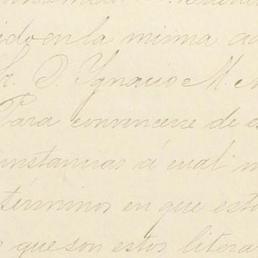 ido en la misma
Sr. D. Ygnacio M.
Para convencerse de
unstancias á cual
términos en que est
que son estos litera